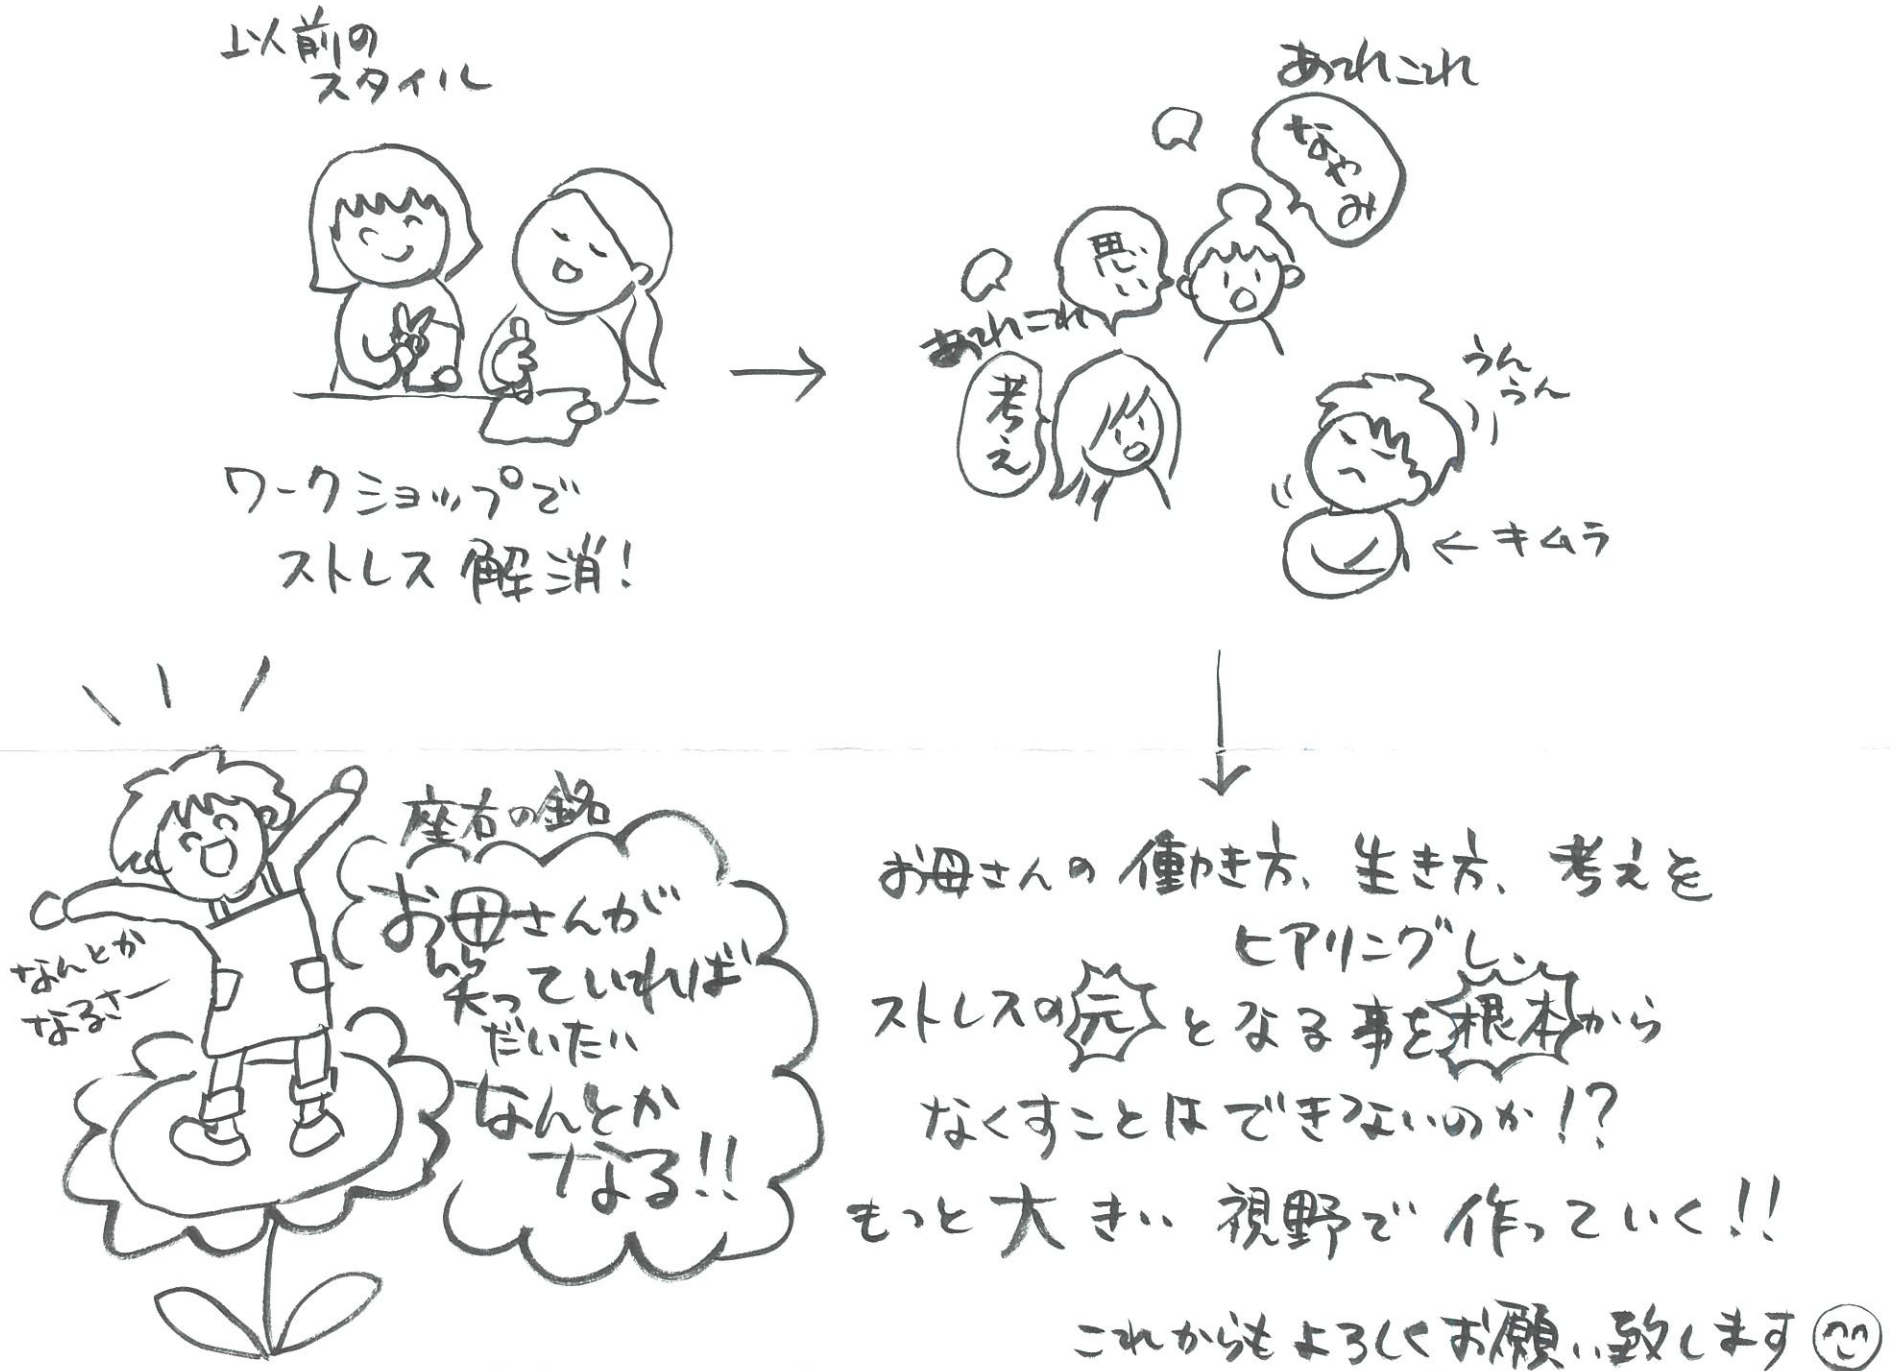 以前の
スタイル
ワークショップで
ストレス解消!
あれこれ
なやみ
思い
あれこれ
考え
うん
うん
←キムラ
お母さんの働き方、生き方、考えを
ヒアリングし、
ストレスの元となる事を根本から
なくすことはできないのか!?
もっと大きい視野で作っていく!!
これからもよろしくお願い致します
座右の銘
お母さんが
笑っていれば
だいたい
なんとか
なる!!
なんとか
なるさー